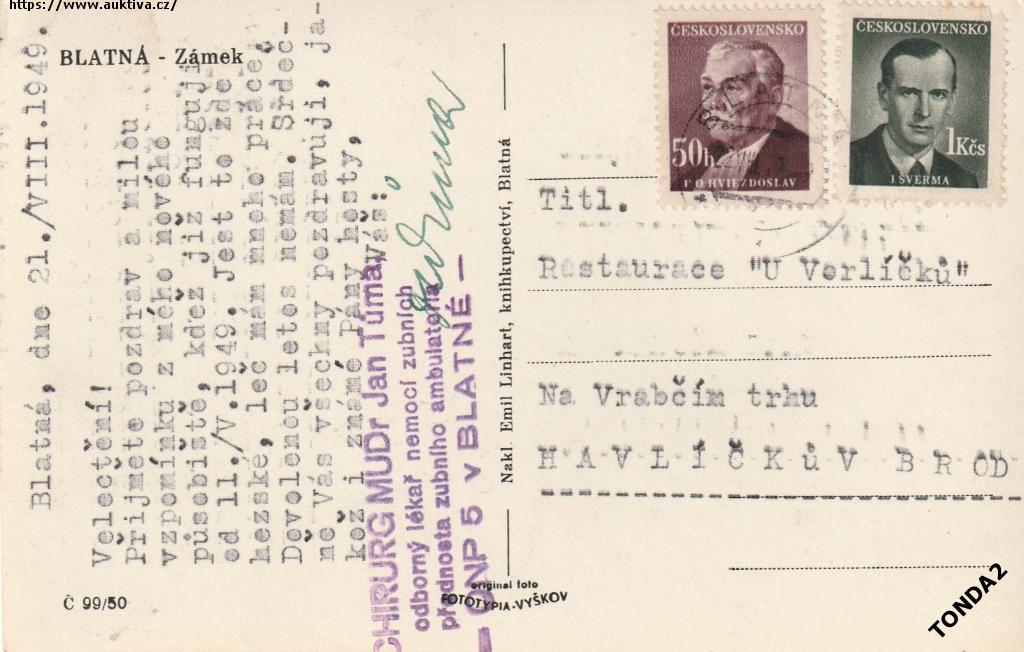 https://www.auktiva.cz/
BLATNÁ - Zámek
Blatná, dne 21./VIII.1949.
Velectění!
Přijměte pozdrav a milou
vzpomínku z mého nového
působiště, kdež již funguji
od 11./V.1949. Jest to zde
hezské, leč mám mnoho práce.
Dovolenou letos nemám. Srdeč-
ně Vás všechny pozdravuji, ja-
kož i známé Pány hosty,
Váš:
CHIRURG MUDr Jan Tůma,
odborný lékař nemocí zubních
přednosta zubního ambulatoria
— ONP 5 v BLATNÉ —
Č 99/50
Nakl. Emil Linhart, knihkupectví, Blatná
original foto
FOTOTYPIA-VYŠKOV
ČESKOSLOVENSKO
50h
P.O.HVIEZDOSLAV
ČESKOSLOVENSKO
1Kčs
J ŠVERMA
Titl.
Restaurace "U Verlíčků"
Na Vrabčím trhu
HAVLÍČKŮV BROD
TONDA2